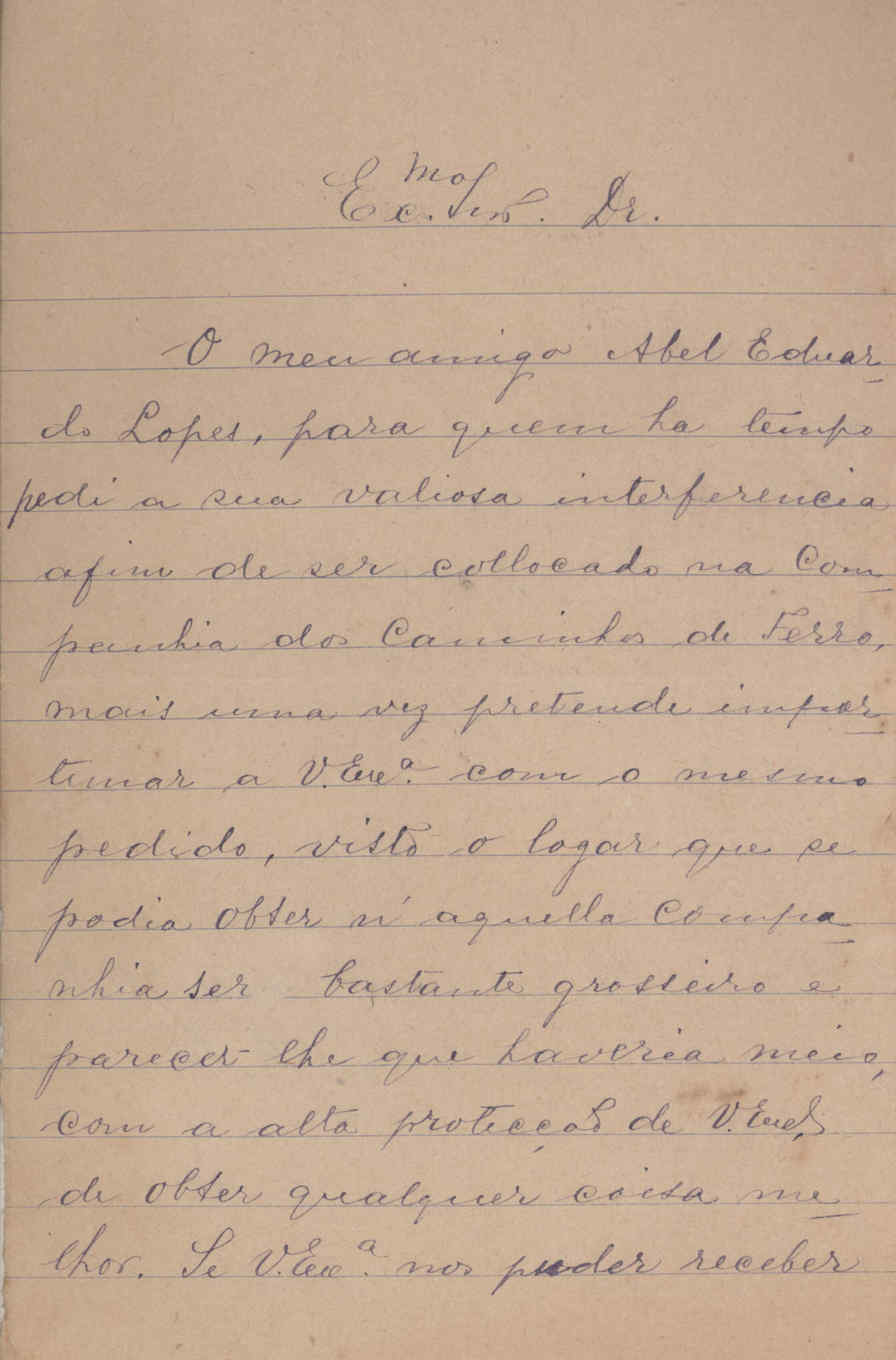 Exc.mo Snr. Dr.
O meu amigo Abel Eduar
do Lopes, para quem ha tempo
pedi a sua valiosa interferencia
afim de ser collocado na Com
panhia dos Caminhos de Ferro,
mais uma vez pretende impor
tunar a V. Exc.ª com o mesmo
pedido, visto o logar que se
podia obter n'aquella Compa
nhia ser bastante grosseiro e
parecer-lhe que haveria meio,
com a alta protecção de V. Exc.ª,
de obter qualquer coisa me
lhor. Se V. Exc.ª nos puder receber